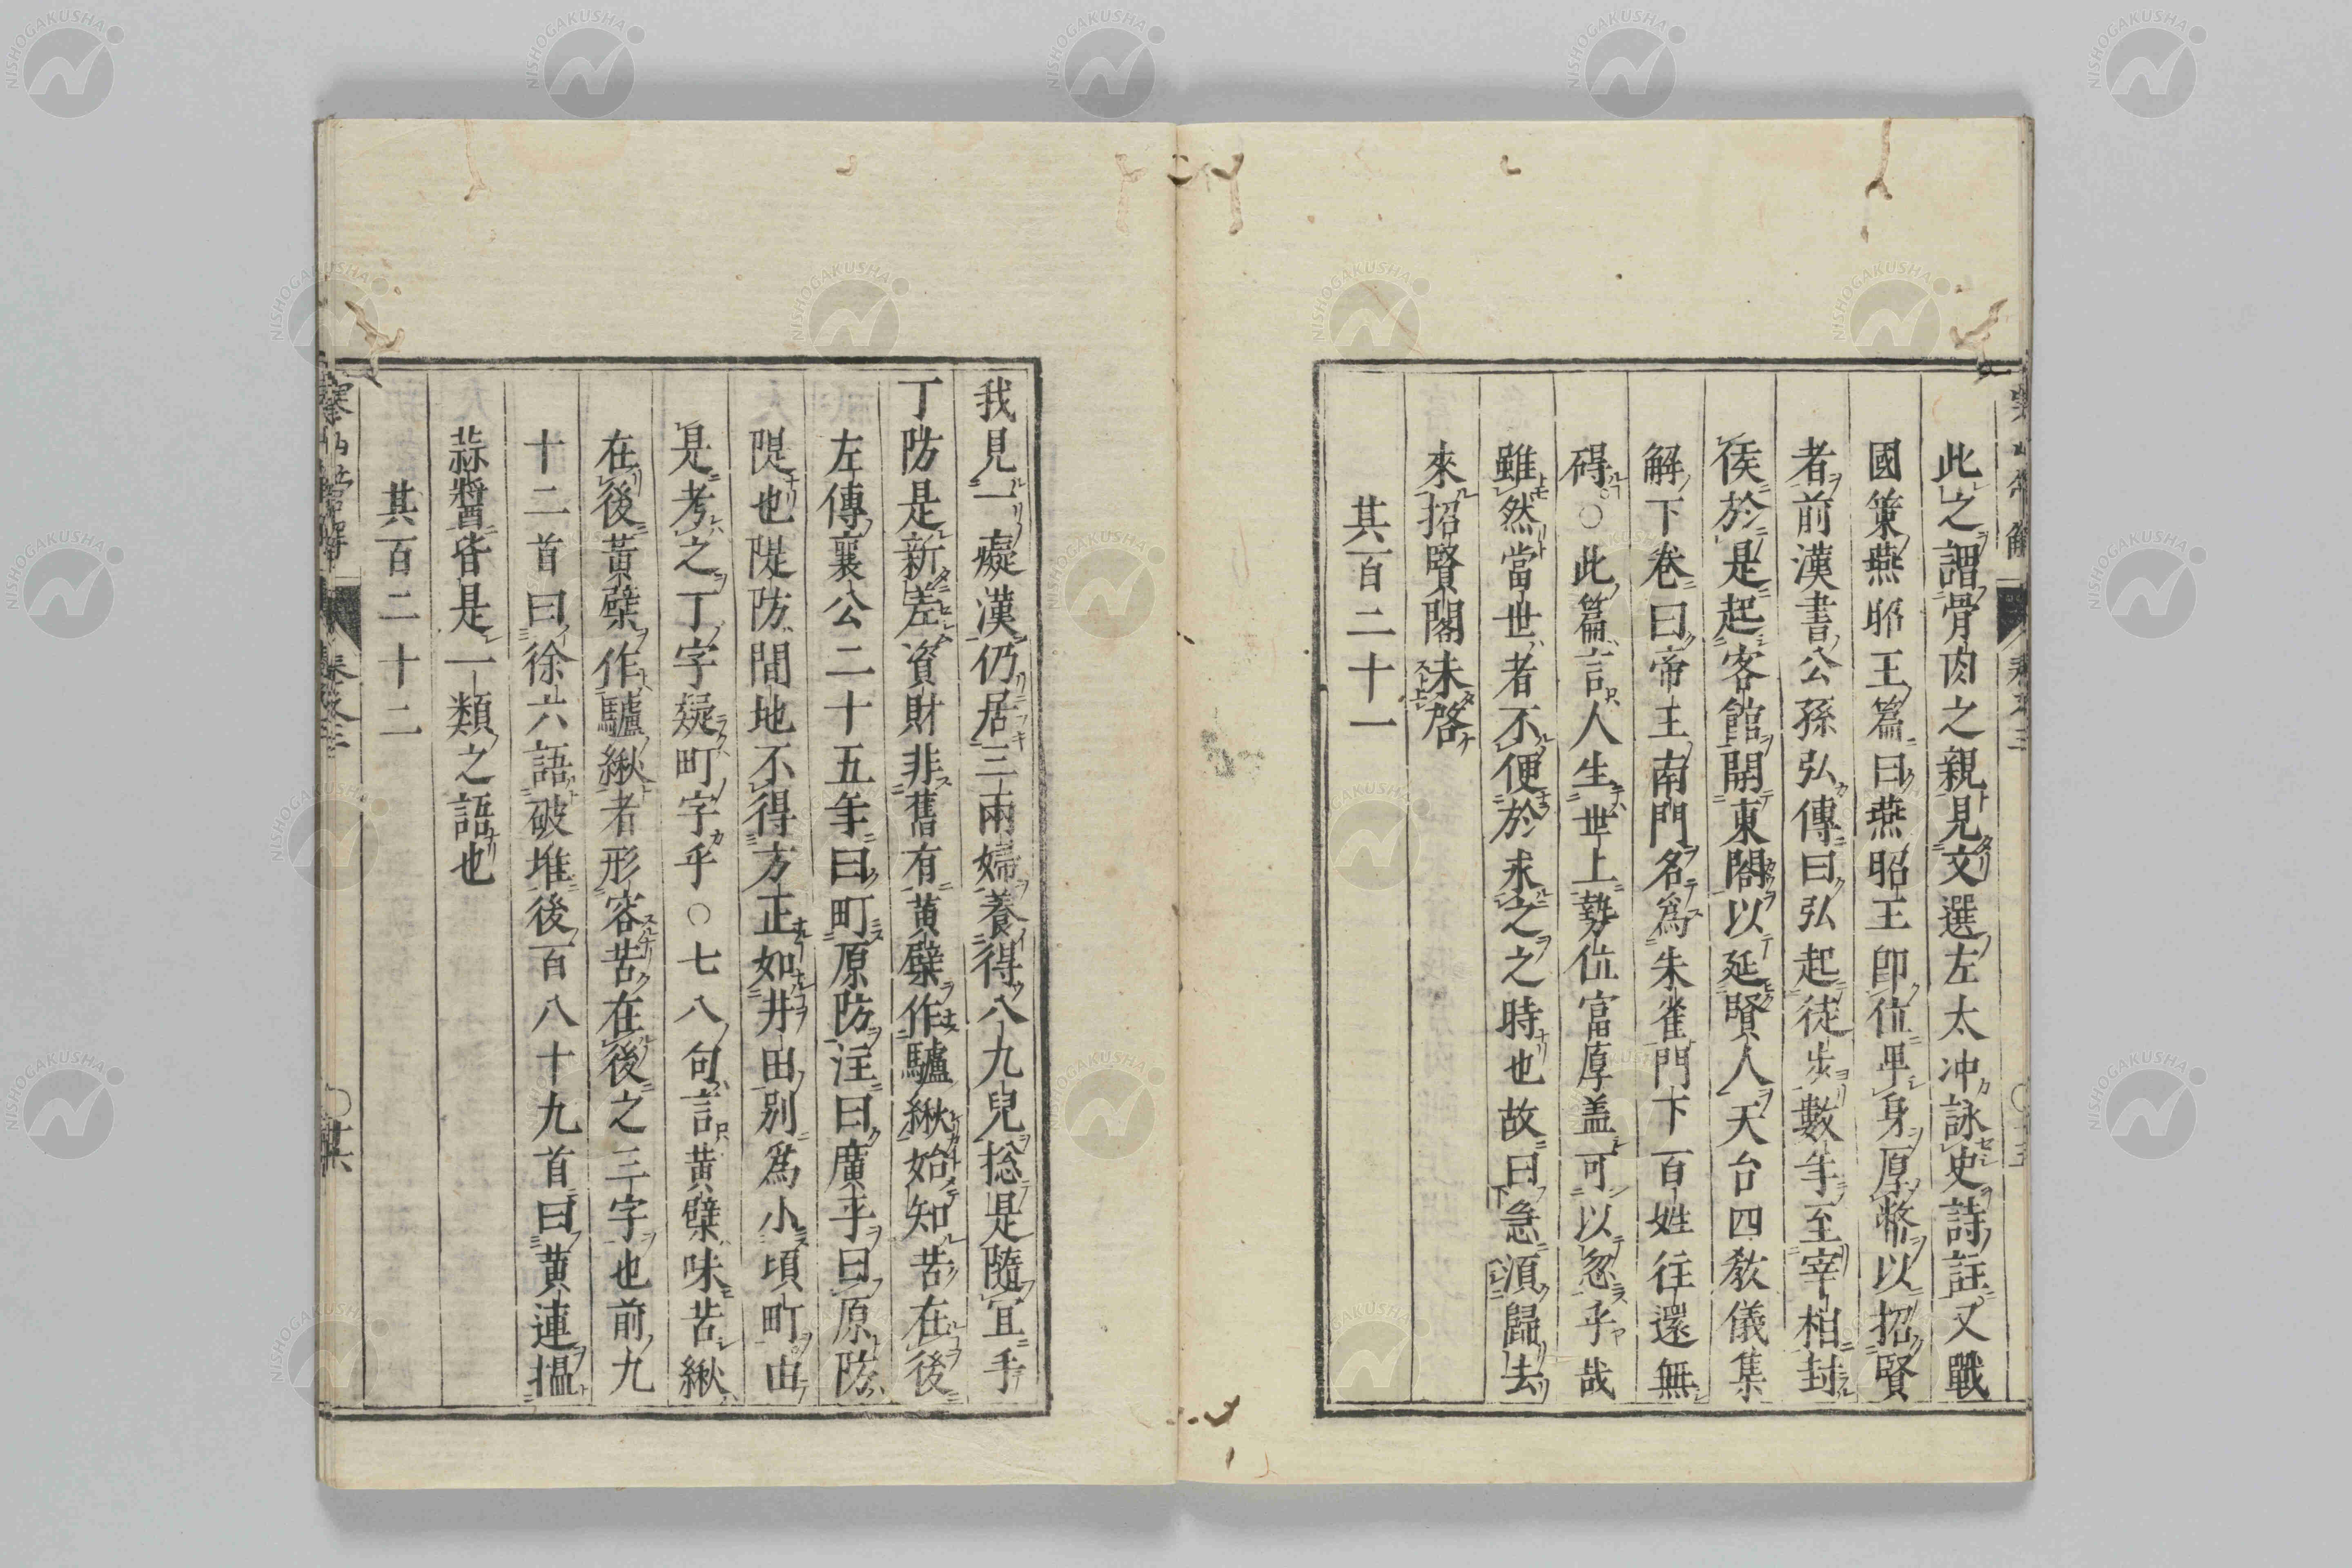 此之謂骨肉之親見文選左太冲詠史詩註又戰
國策燕昭王篇曰燕昭王即位卑身厚幣以招賢
者前漢書公孫弘傳曰弘起徒步數年至宰相封
侯於是起客館開東閤以延賢人天台四教儀集
解下卷曰帝王南門名為朱雀門下百姓往還無
碍○此篇言人生世上勢位富厚盖可以忽乎哉
雖然當世者不便於求之之時也故曰急須歸去
來招賢閣未啓
其百二十一
我見一癡漢仍居三兩婦養得八九兒捴是隨宜手
丁防是新差資財非舊有黄蘗作驢緧始知苦在後
左傳襄公二十五年曰町原防注曰廣平曰原防
隄也隄防間地不得方正如井田別為小頃町由
是考之丁字疑町字乎○七八句言黄蘗味苦緧
在後黄蘗作驢緧者形容苦在後之三字也前九
十二首曰徐六語破堆後百八十九首曰黄連搵
蒜醬皆是一類之語也
其百二十二